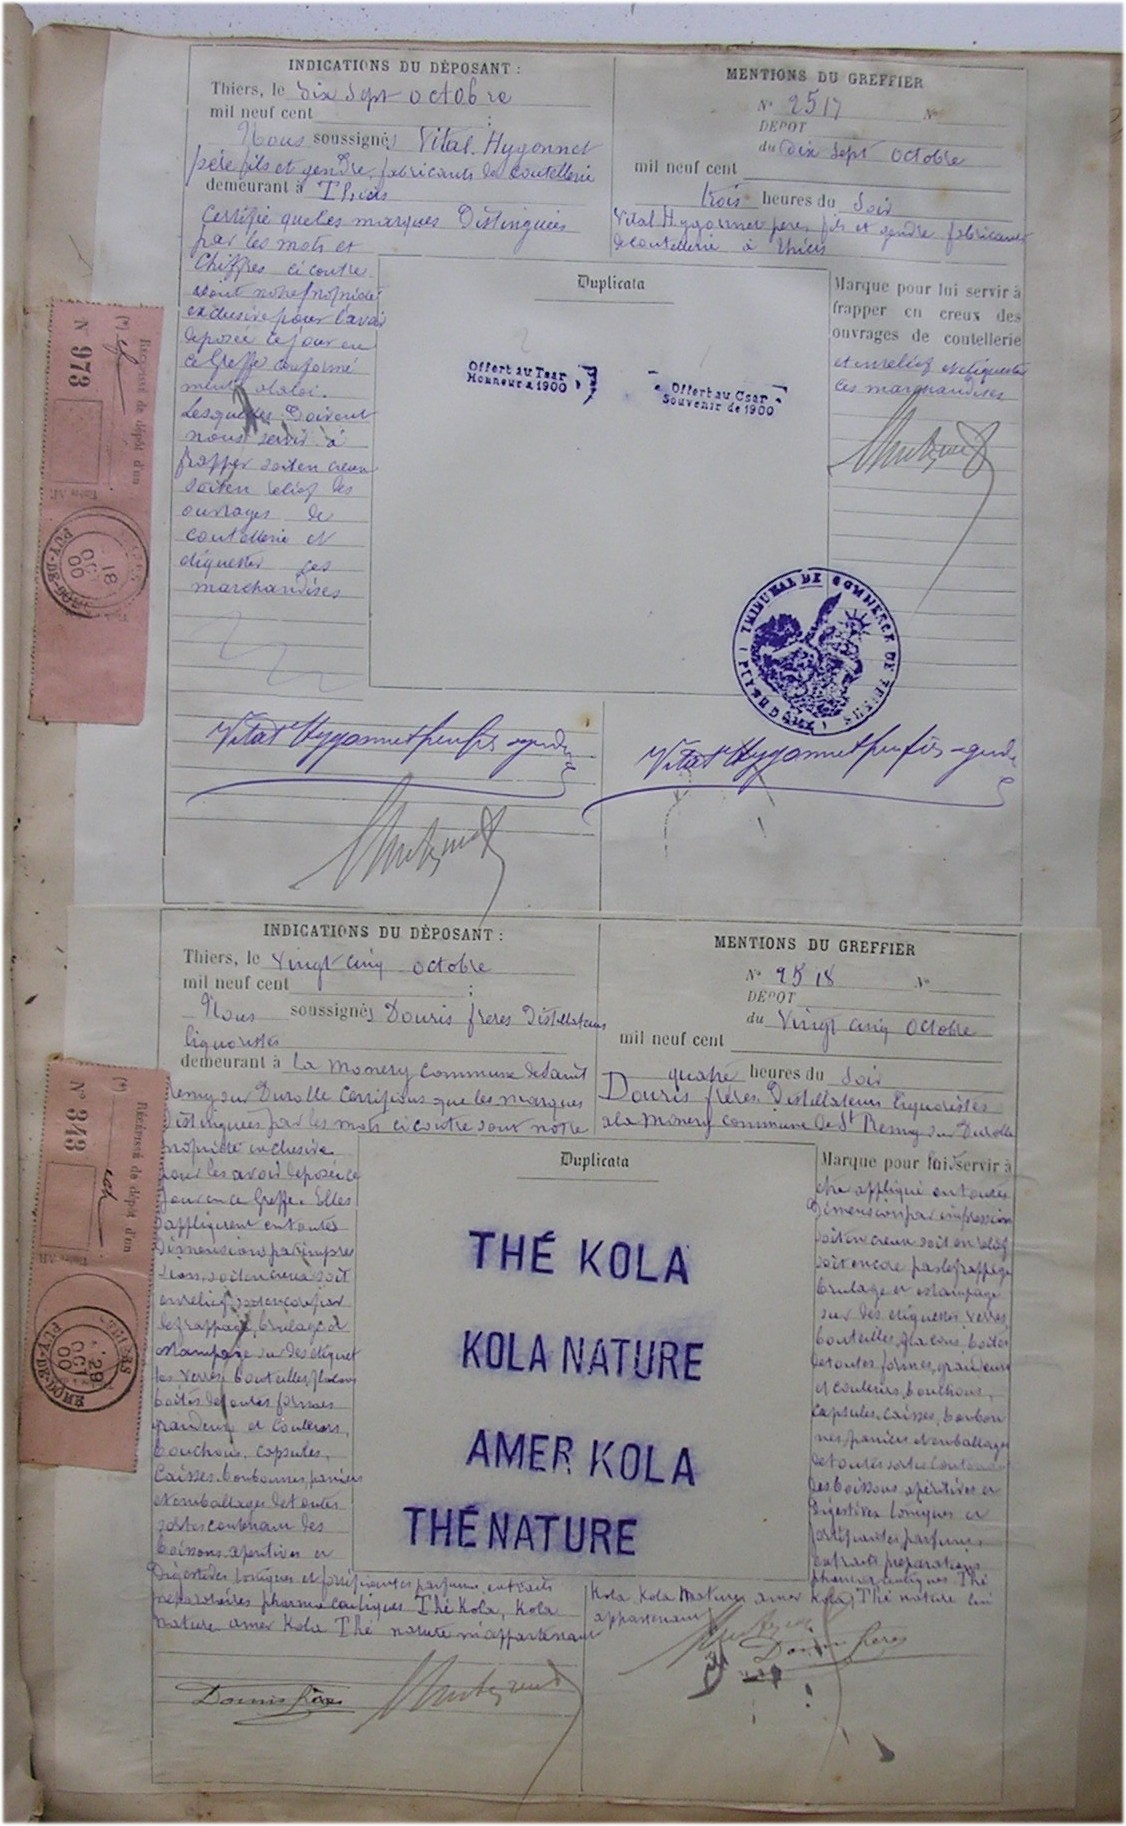 INDICATIONS DU DÉPOSANT :
Thiers, le dix sept octobre
mil neuf cent :
Nous soussignés Vital Hygonnet
père fils et gendre fabricants de coutellerie
demeurant à Thiers
Certifie que les marques Distinguées
par les mots et
Chiffres ci contre
sont notre propriété
exclusive pour l'avoir
déposée ce jour au
ce Greffe conformé
ment à la loi.
Lesquelles Doivent
nous servir à
frapper soit en creux
soit en relief les
ouvrages de
coutellerie et
étiqueter ces
marchandises
Vital Hygonnet père fils & gendre
MENTIONS DU GREFFIER
N° 2517 N°
DEPOT
du dix sept octobre
mil neuf cent
trois heures du soir
Vital Hygonnet père fils et gendre fabricants
de coutellerie à Thiers
Duplicata
Offert au Tsar
Honneur à 1900
Offert au Csar
Souvenir de 1900
Marque pour lui servir à
frapper en creux des
ouvrages de coutellerie
et en relief et étiqueter
ces marchandises
TRIBUNAL DE COMMERCE DE THIERS
( PUY DE DÔME )
Vital Hygonnet père fils & gendre
Récépissé de dépôt d'un
(*)
N° 973
PUY-DE-DOME
18
OCT
00
INDICATIONS DU DÉPOSANT :
Thiers, le vingt cinq octobre
mil neuf cent :
Nous soussignés Douris frères Distillateurs
liquoristes
demeurant à La Monery commune de Saint
Remy sur Durolle Certifions que les marques
Distinguées par les mots ci contre sont notre
propriété exclusive
pour les avoir déposée ce
jour en ce Greffe. Elles
s'appliquent en toutes
Dimensions par impres
sion, soit en creux soit
en relief, soit encore par
le frappage, brulage et
estampage sur des étiquet
tes verres bouteilles, flacons
boites de toutes formes
grandeurs et couleurs,
bouchons, capsules,
Caisses, bonbonnes, paniers
et emballages de toutes
sortes contenant des
boissons aperitives et
Digestives toniques et fortifiantes parfums, extraits
préparatoires pharmaceutiques Thé Kola, Kola
nature amer Kola Thé nature m'appartenant
Douris frères
MENTIONS DU GREFFIER
N° 2518 N°
DEPOT
du vingt cinq octobre
mil neuf cent
quatre heures du soir
Douris frères Distillateurs liquoristes
à la Monery commune de St Remy sur Durolle
Duplicata
THÉ KOLA
KOLA NATURE
AMER KOLA
THÉ NATURE
Marque pour lui servir à
être appliqué en toutes
Dimensions par impression
soit en creux soit en relief
soit encore par le frappage
brulage et estampage
sur des étiquettes, verres,
bouteilles, flacons, boites
de toutes formes, grandeurs
et couleurs, bouchons,
capsules, caisses, bonbon
nes, paniers et emballages
de toutes sortes contenant
des boissons apéritives et
Digestives toniques et
fortifiantes parfums,
extraits préparations
pharmaceutiques Thé
Kola Kola Nature amer Kola, Thé nature lui
appartenant
Douris frères
Récépissé de dépôt d'un
(*)
N° 343
THIERS
PUY-DE-DOME
29
OCT
00